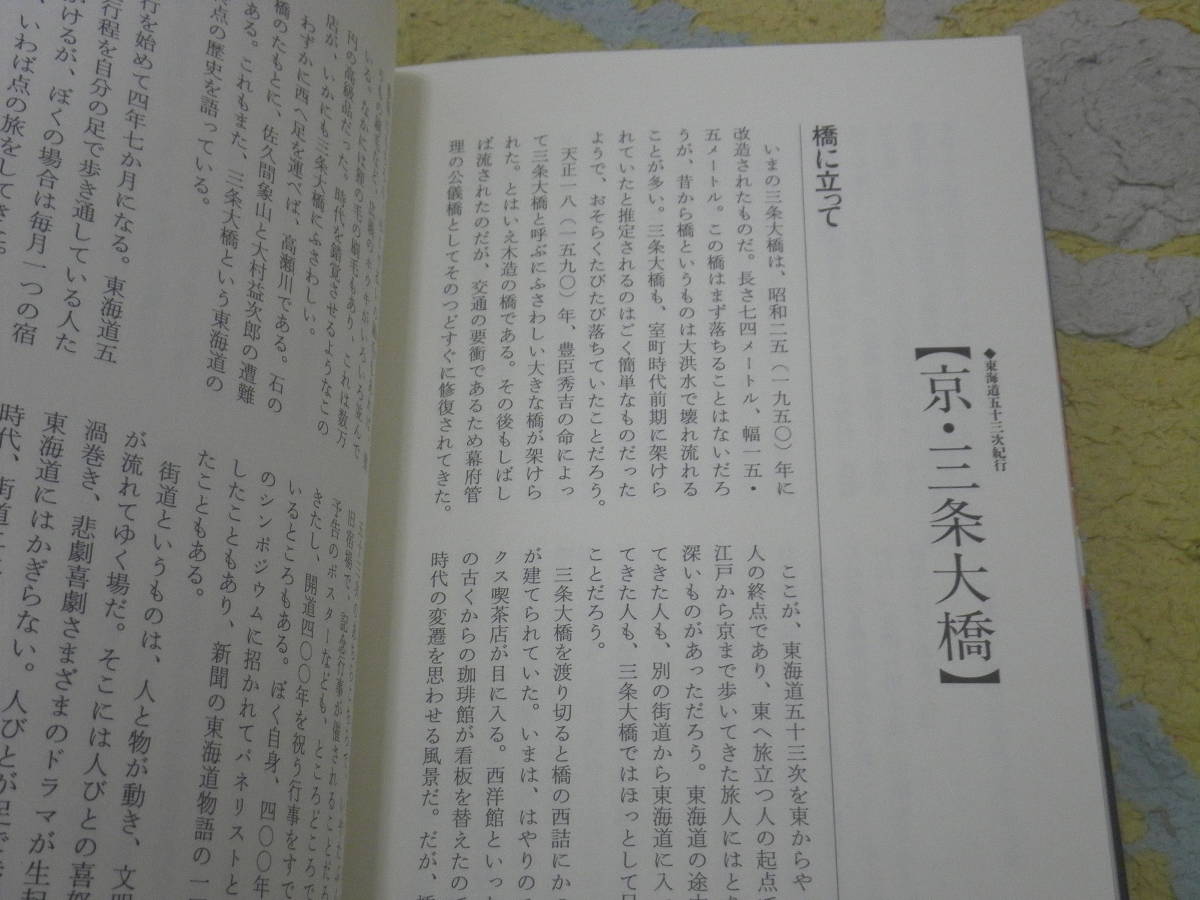 ◆東海道五十三次紀行
【京・三条大橋】
橋に立って
いまの三条大橋は、昭和二五（一九五〇）年に
改造されたものだ。長さ七四メートル、幅一五・
五メートル。この橋はまず落ちることはないだろ
うが、昔から橋というものは大洪水で壊れ流れる
ことが多い。三条大橋も、室町時代前期に架けら
れていたと推定されるのはごく簡単なものだった
ようで、おそらくたびたび落ちていたことだろう。
天正一八（一五九〇）年、豊臣秀吉の命によっ
て三条大橋と呼ぶにふさわしい大きな橋が架けら
れた。とはいえ木造の橋である。その後もしばし
ば流されたのだが、交通の要衝であるため幕府管
理の公儀橋としてそのつどすぐに修復されてきた。
ここが、東海道五十三次を東からや
人の終点であり、東へ旅立つ人の起点
江戸から京まで歩いてきた旅人にはと
深いものがあっただろう。東海道の途
てきた人も、別の街道から東海道に入
てきた人も、三条大橋ではほっとして
ことだろう。
三条大橋を渡り切ると橋の西詰にか
が建てられていた。いまは、はやりの
クス喫茶店が目に入る。西洋館といっ
の古くからの珈琲館が看板を替えたの
時代の変遷を思わせる風景だ。だが、
いる。なかには狸の毛の刷毛もあり、これは数万
円の高級品だった。時代を錯覚させるようなこの
店が、いかにも三条大橋にふさわしい。
わずかに西へ足を運べば、高瀬川である。石の
橋のたもとに、佐久間象山と大村益次郎の遭難
ある。これもまた、三条大橋という東海道の
終点の歴史を語っている。
行を始めて四年七か月になる。東海道五
行程を自分の足で歩き通している人た
かけるが、ぼくの場合は毎月一つの宿
、いわば点の旅をしてきた
旧宿場で、記念行事が催されることだろ
予告のポスターなども、ところどころで
きたし、開道四〇〇年を祝う行事をすで
いるところもある。ぼく自身、四〇〇年
のシンポジウムに招かれてパネリストと
したこともあり、新聞の東海道物語の一
たこともある。
街道というものは、人と物が動き、文明
が流れてゆく場だ。そこには人びとの喜怒
渦巻き、悲劇喜劇さまざまのドラマが生起
東海道にはかぎらない。人びとが足で
時代、街道